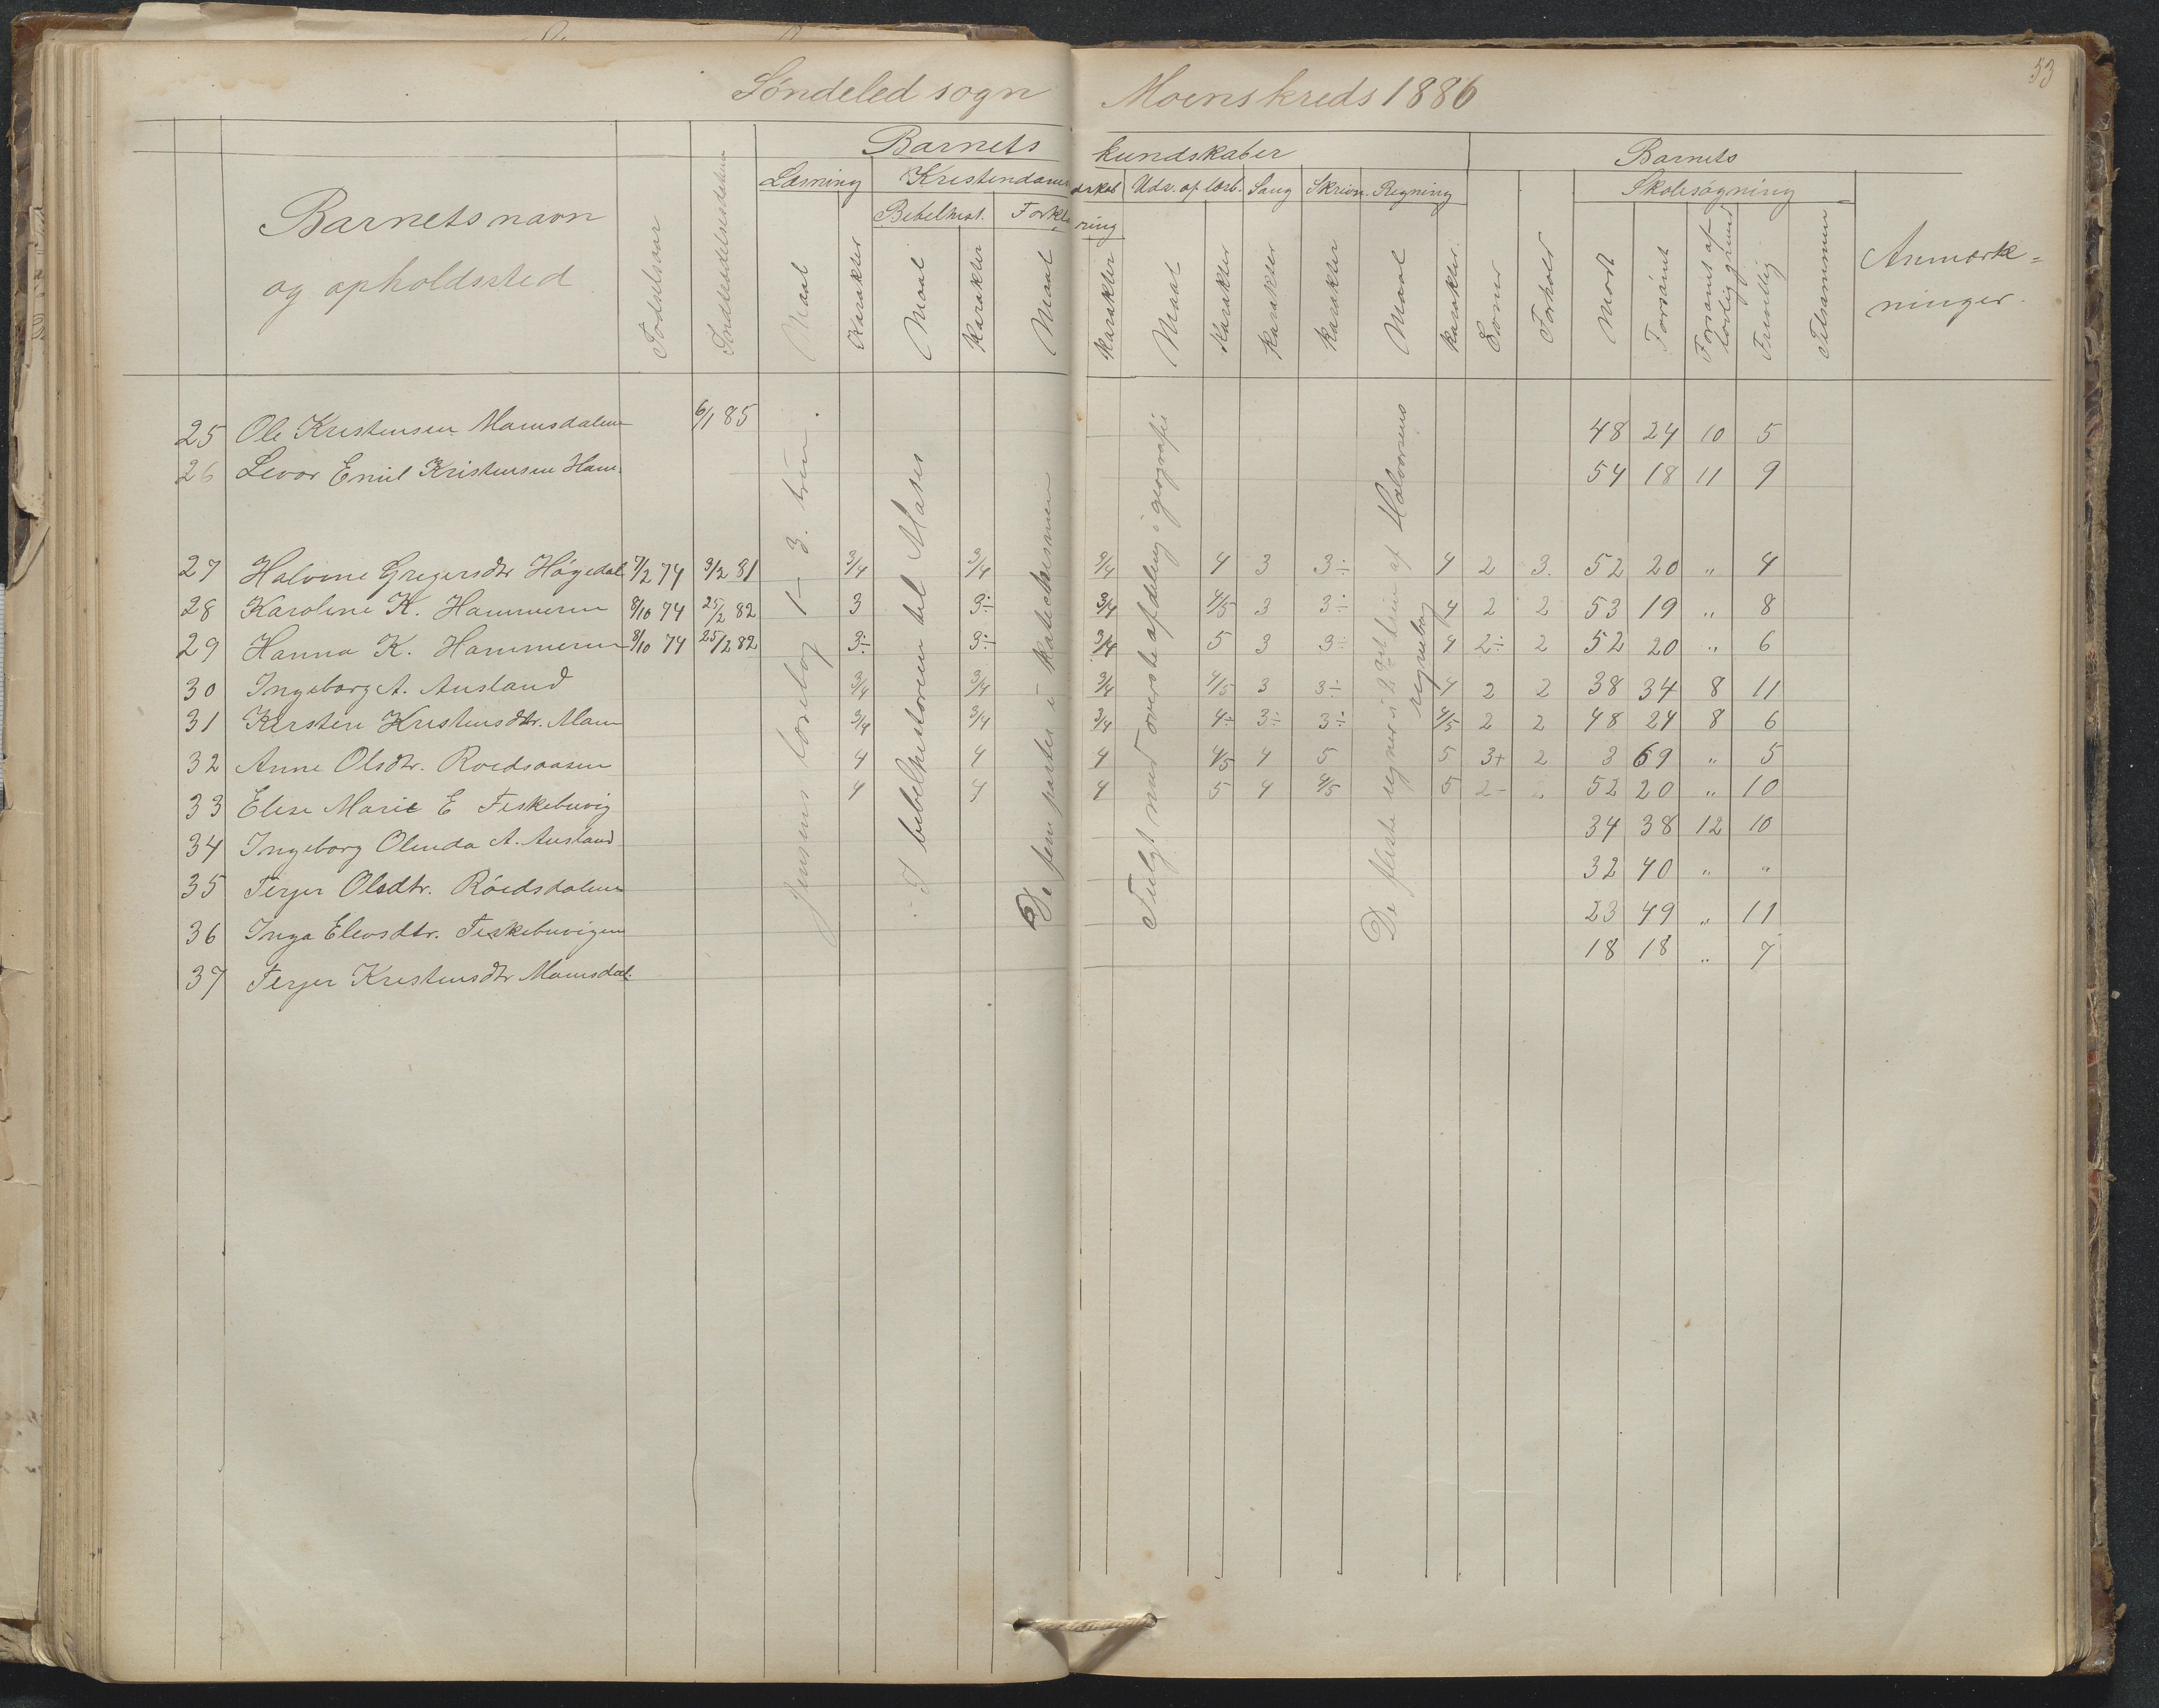 53
Söndeled sogn Moens kreds 1886
Barnets kundskaber Barnets
Læsning Kristendomskundskab Udv. af læsb. Sang Skrivn. Regning Skolesøgning
Bibelhist. Forklaring
Barnets navn
og opholdssted
Fødselsaar
Indtrædelsesdatum
Maal Karakter Maal Karakter Maal Karakter Maal Karakter Karakter Karakter Maal Karakter Evner Forhold Mødt Forsømt Forsømt af lovlig grund Frivillig Tilsammen
Anmærk=
ninger.
25 Ole Kristensen Moensdalen 6/1 85 48 24 10 5
26 Levor Emil Kristensen Ham. 54 18 11 9
27 Halvine Gregersdtr Høgedal 7/2 74 3/2 81 3/4 3/4 3/4 4 3 3÷ 4 2 3. 52 20 " 4
28 Karoline K. Hammeren 8/10 74 25/2 82 3 3÷ 3/4 4/5 3 3÷ 4 2 2 53 19 " 8
29 Hanna K. Hammeren 8/10 74 25/2 82 3÷ 3÷ 3/4 5 3 3÷ 4 2÷ 2 52 20 " 6
30 Ingeborg A. Ausland 3/4 3/4 3/4 4/5 3 3÷ 4 2 2 38 34 8 11
31 Kirsten Kristensdtr. Moen 3/4 3/4 3/4 4÷ 3÷ 3÷ 4/5 2 2 48 24 8 6
32 Anne Olsdtr. Roedsaasen 4 4 4 4/5 4 5 5 3+ 2 3 69 " 5
33 Elise Marie E Fiskebuvig 4 4 4 5 4 4/5 5 2- 52 20 " 10
34 Ingeborg Olinda A. Ausland 34 38 12 10
35 Terjer Olsdtr. Röedsdalen 32 40 " "
36 Inga Elevsdtr. Fiskebuvigen 23 49 " 11
37 Terjer Kristensdtr Moensdal. 18 18 " 7
Jensens læsebog 1– 3. trin.
I bibelhistorien til Moses
De fem parter i katechismen
Fulgt med øverste afdeling i geografi
De fleste regner i 2det trin af Halvorsens
regnebog